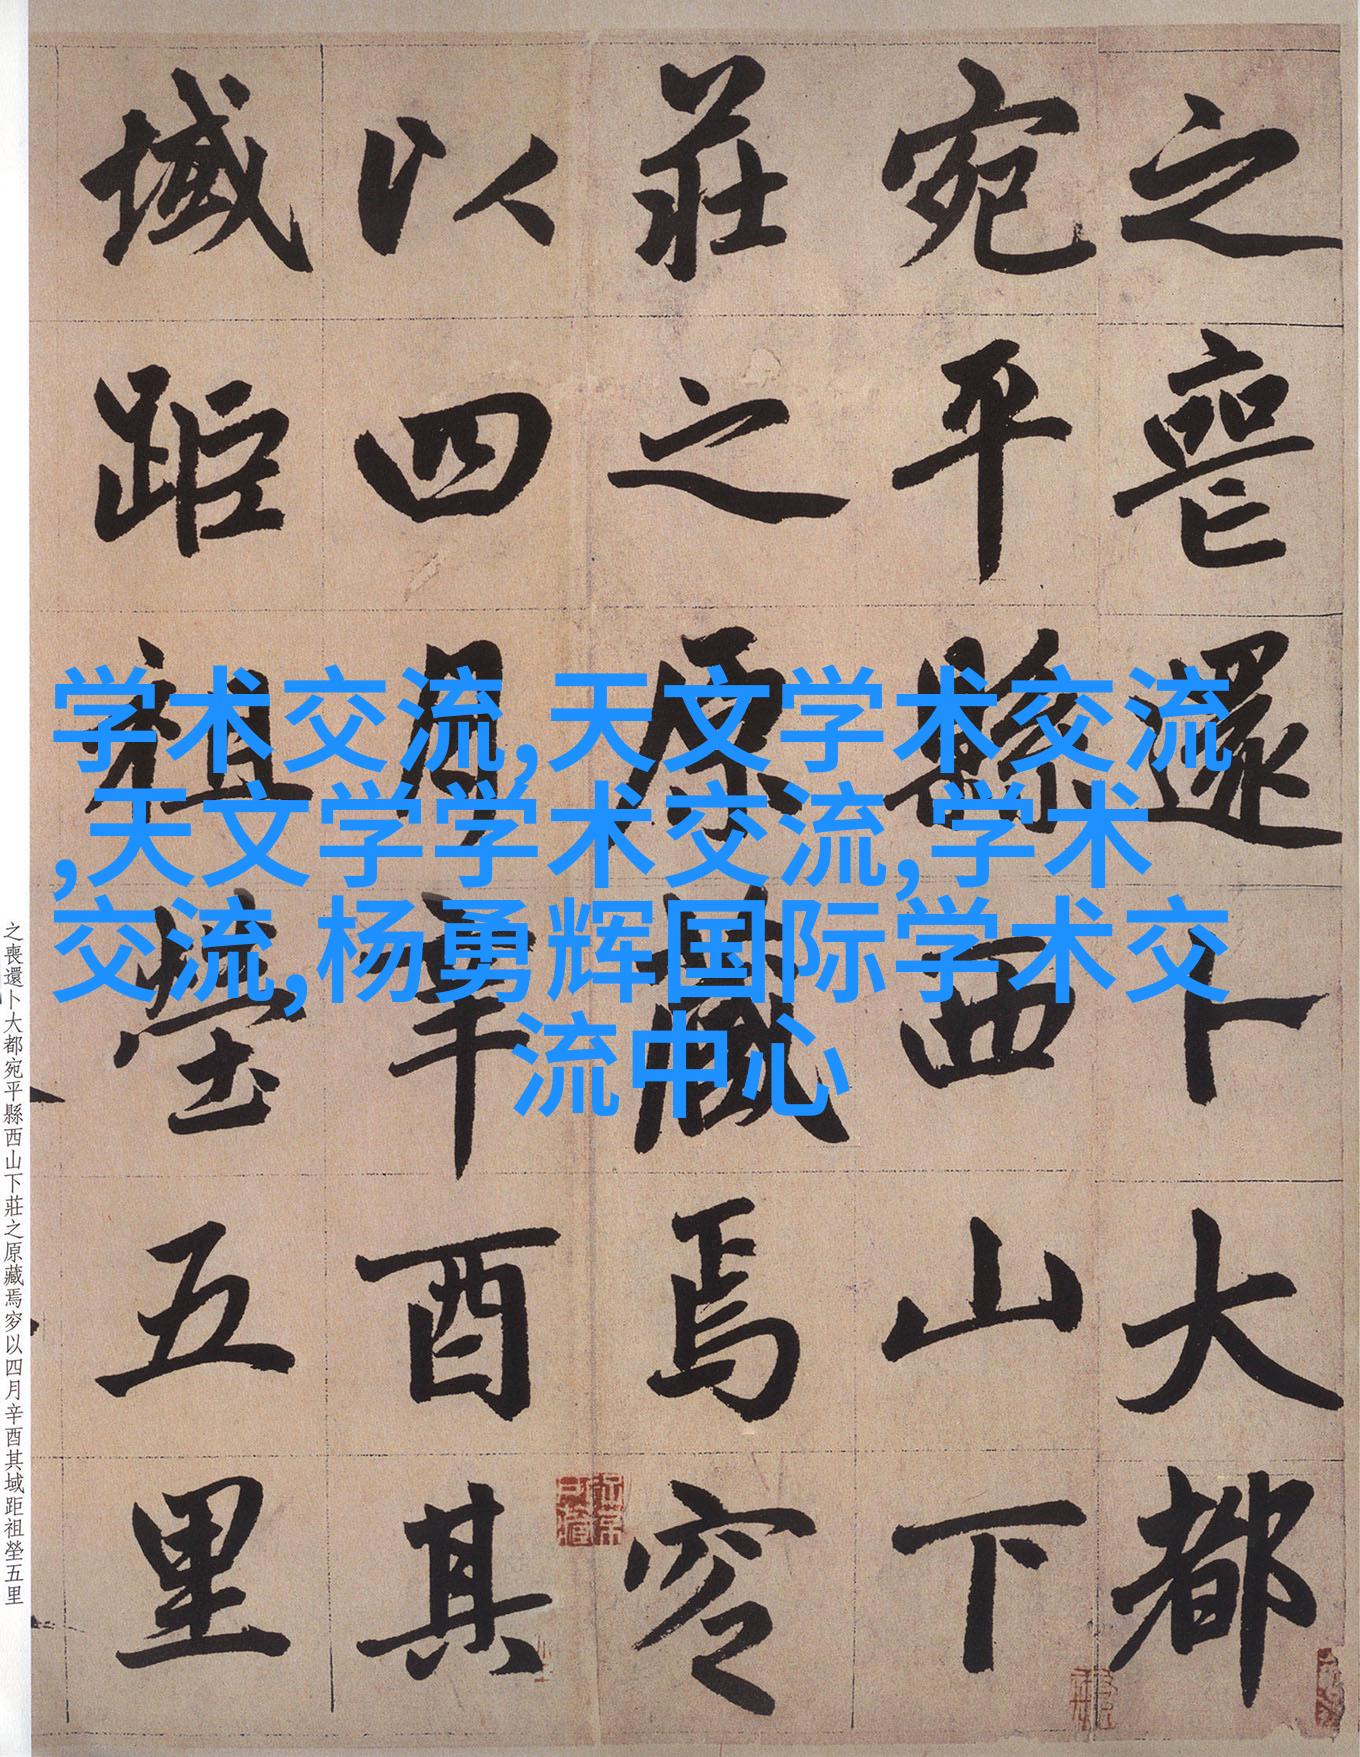 之喪還卜大都
宛平縣西山下
莊之原藏焉穸
以四月辛酉其
域距祖塋五里
学术交流,天文学术交流
,天文学学术交流,学术
交流,杨勇辉国际学术交
流中心
之喪還卜大都宛平縣西山下莊之原藏焉穸以四月辛酉其域距祖塋五里